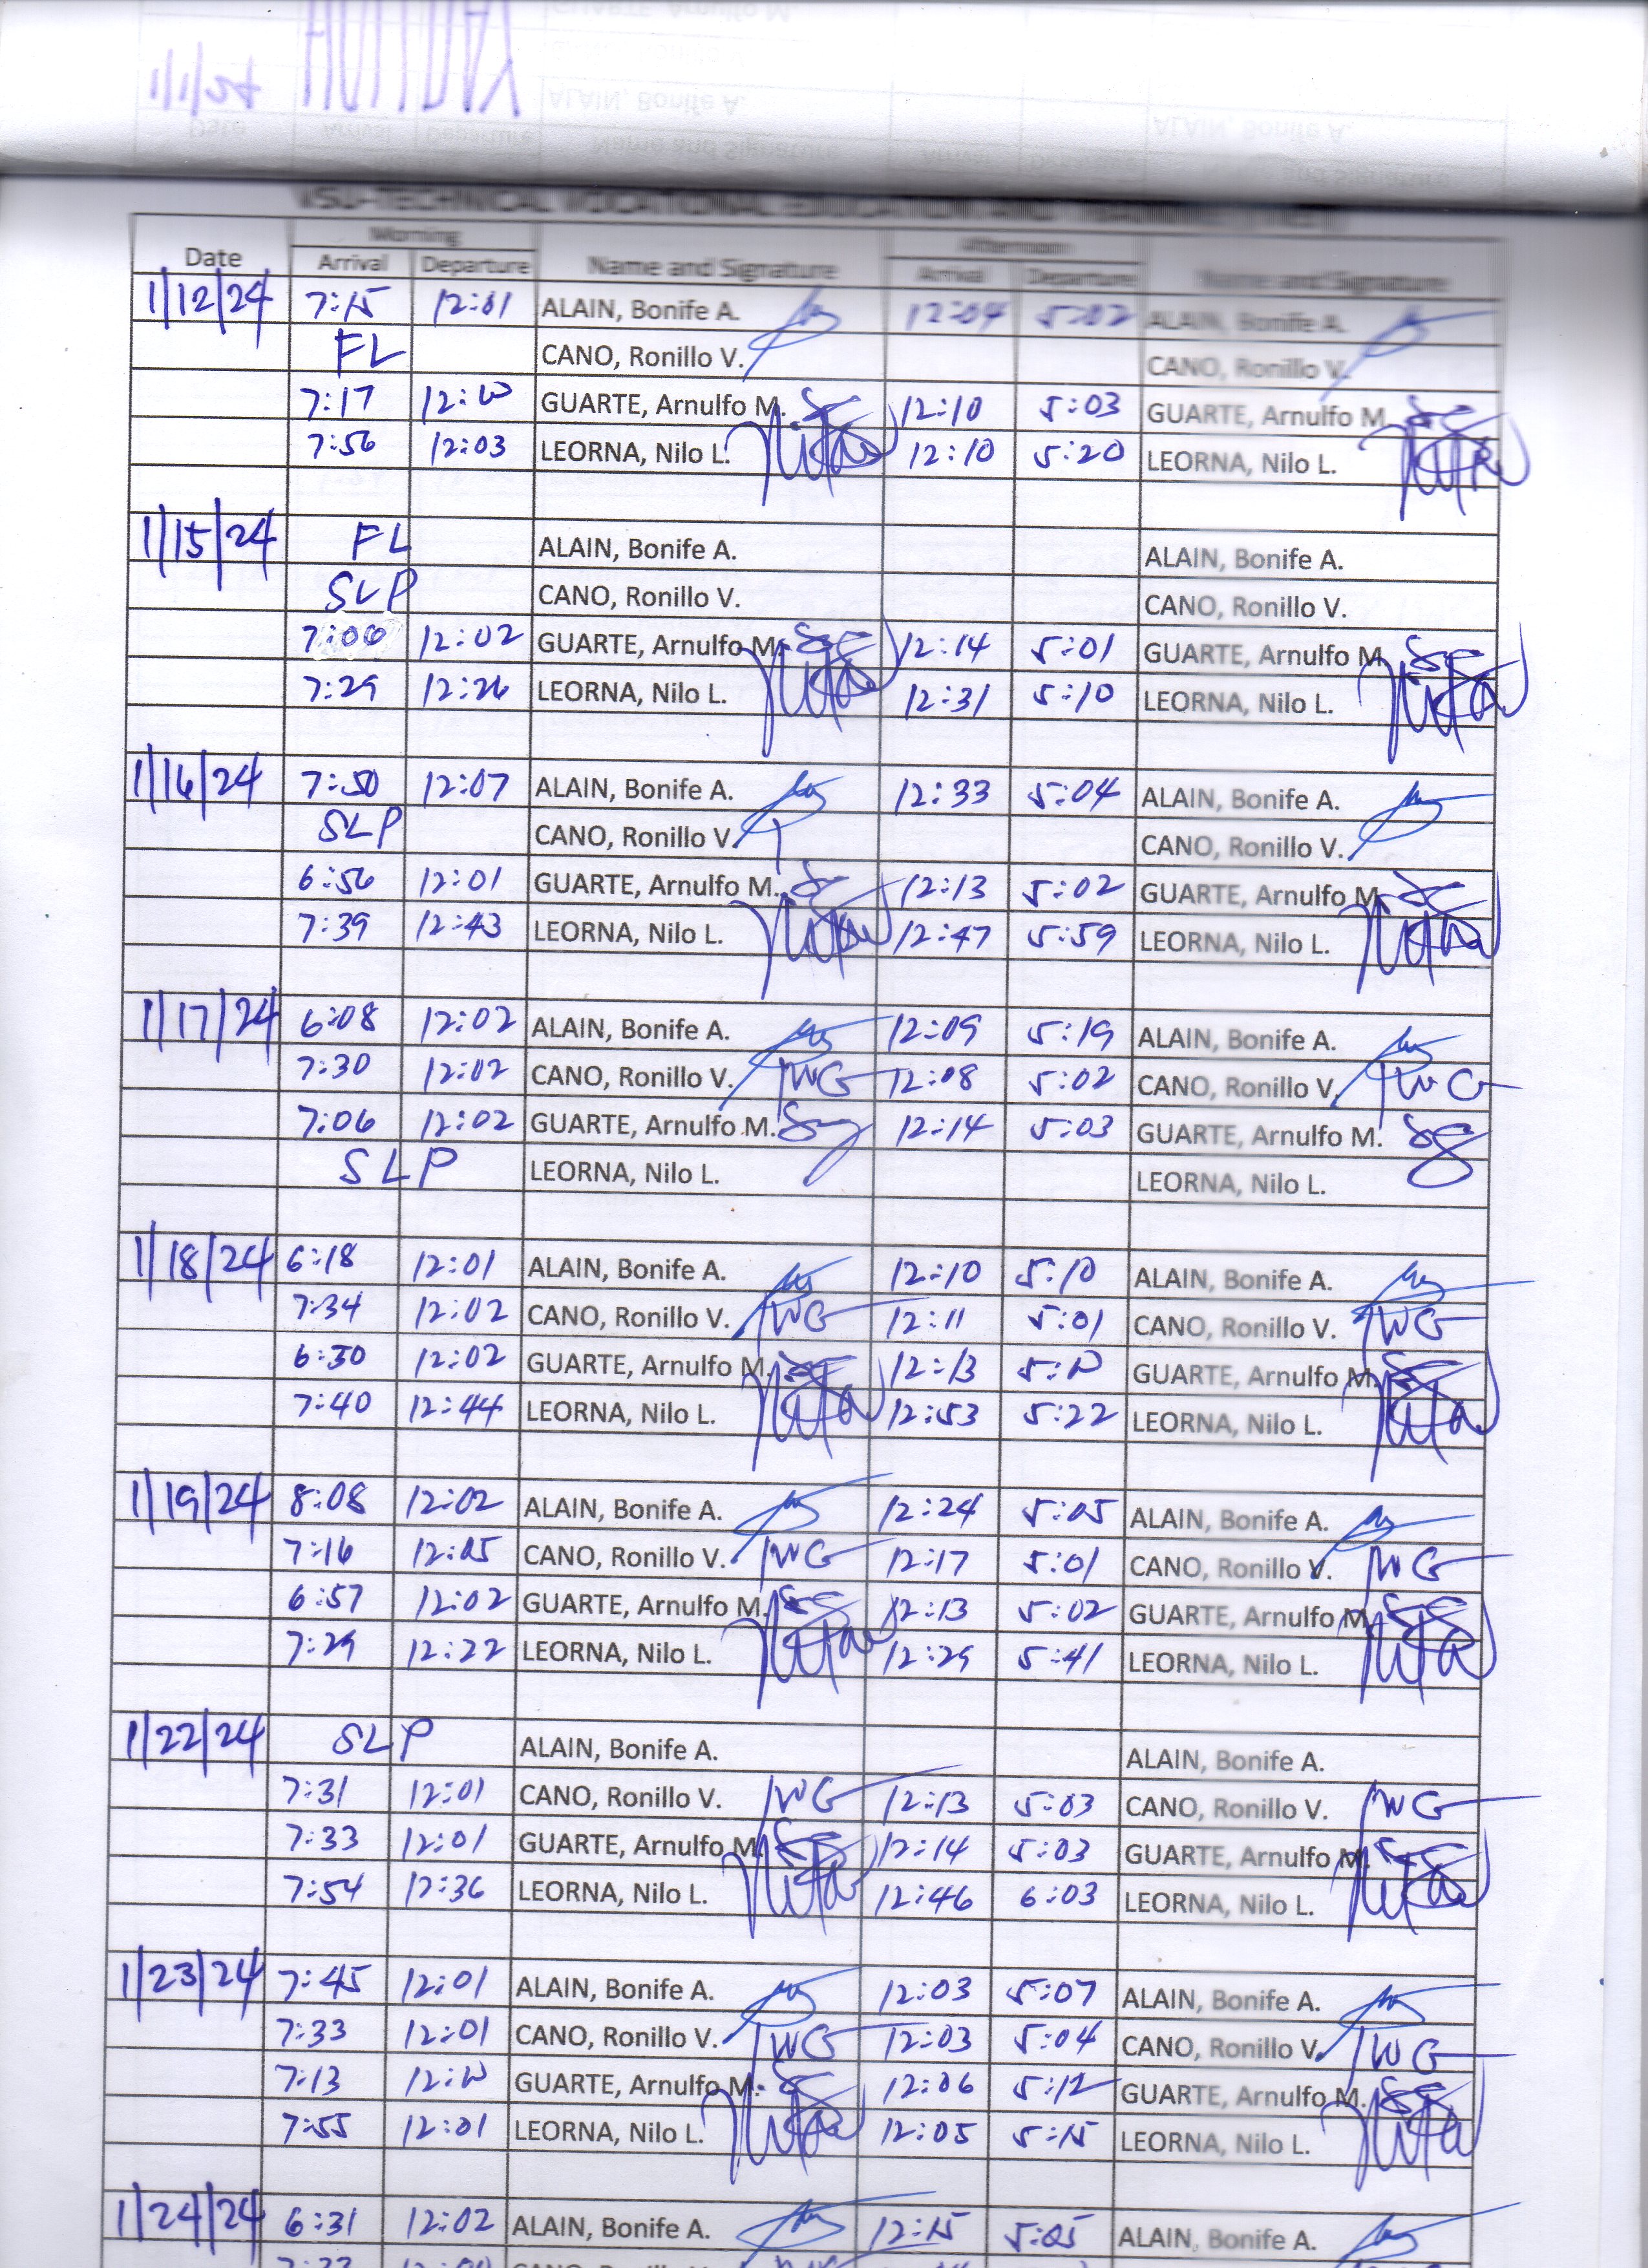 1/1/24 HOLIDAY
VSU-TECHNICAL VOCATIONAL EDUCATION AND TRAINING
Morning Afternoon
Date Arrival Departure Name and Signature Arrival Departure Name and Signature
1/12/24 7:15 12:01 ALAIN, Bonife A. 12:04 5:02 ALAIN, Bonife A.
FL CANO, Ronillo V. CANO, Ronillo V.
7:17 GUARTE, Arnulfo M. 12:10 5:03 GUARTE, Arnulfo M.
7:56 12:03 LEORNA, Nilo L. 12:10 5:20 LEORNA, Nilo L.
1/15/24 FL ALAIN, Bonife A. ALAIN, Bonife A.
SLP CANO, Ronillo V. CANO, Ronillo V.
7:00 12:02 GUARTE, Arnulfo M. 12:14 5:01 GUARTE, Arnulfo M.
7:29 12:26 LEORNA, Nilo L. 12:31 5:10 LEORNA, Nilo L.
1/16/24 7:50 12:07 ALAIN, Bonife A. 12:33 5:04 ALAIN, Bonife A.
SLP CANO, Ronillo V. CANO, Ronillo V.
6:56 12:01 GUARTE, Arnulfo M. 12:13 5:02 GUARTE, Arnulfo M.
7:39 12:43 LEORNA, Nilo L. 12:47 5:59 LEORNA, Nilo L.
1/17/24 6:08 12:02 ALAIN, Bonife A. 12:09 5:19 ALAIN, Bonife A.
7:30 12:02 CANO, Ronillo V. 12:08 5:02 CANO, Ronillo V.
7:06 12:02 GUARTE, Arnulfo M. 12:14 5:03 GUARTE, Arnulfo M.
SLP LEORNA, Nilo L. LEORNA, Nilo L.
1/18/24 6:18 12:01 ALAIN, Bonife A. 12:10 5:10 ALAIN, Bonife A.
7:34 12:02 CANO, Ronillo V. 12:11 5:01 CANO, Ronillo V.
6:50 12:02 GUARTE, Arnulfo M. 12:13 GUARTE, Arnulfo M.
7:40 12:44 LEORNA, Nilo L. 12:53 5:22 LEORNA, Nilo L.
1/19/24 8:08 12:02 ALAIN, Bonife A. 12:24 5:05 ALAIN, Bonife A.
7:16 12:05 CANO, Ronillo V. 12:17 5:01 CANO, Ronillo V.
6:57 12:02 GUARTE, Arnulfo M. 12:13 5:02 GUARTE, Arnulfo M.
7:29 12:22 LEORNA, Nilo L. 12:29 5:41 LEORNA, Nilo L.
1/22/24 SLP ALAIN, Bonife A. ALAIN, Bonife A.
7:31 12:01 CANO, Ronillo V. 12:13 5:03 CANO, Ronillo V.
7:33 12:01 GUARTE, Arnulfo M. 12:14 5:03 GUARTE, Arnulfo M.
7:54 12:36 LEORNA, Nilo L. 12:46 6:03 LEORNA, Nilo L.
1/23/24 7:45 12:01 ALAIN, Bonife A. 12:03 5:07 ALAIN, Bonife A.
7:33 12:01 CANO, Ronillo V. 12:03 5:04 CANO, Ronillo V.
7:13 GUARTE, Arnulfo M. 12:06 5:12 GUARTE, Arnulfo M.
7:55 12:01 LEORNA, Nilo L. 12:05 5:15 LEORNA, Nilo L.
1/24/24 6:31 12:02 ALAIN, Bonife A. 12:15 5:05 ALAIN, Bonife A.